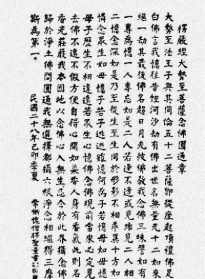 楞嚴經大勢至菩薩念佛圓通章
大勢至法王子與其同倫五十二菩薩即從座起頂禮佛足而
白佛言我憶往昔恒河沙劫有佛出世名無量光十二如來相
繼一劫其最後佛名超日月光彼佛教我念佛三昧譬如有人
一專為憶一人專忘如是二人若逢不逢或見非見二人相憶
二憶念深如是乃至從生至生同於形影不相乖異十方如來
憐念眾生如母憶子若子逃逝雖憶何為子若憶母如母憶時
母子歷生不相違遠若眾生心憶佛念佛現前當來必定見佛
去佛不遠不假方便自得心開如染香人身有香氣此則名曰
香光莊嚴我本因地以念佛心入無生忍今於此界攝念佛人
歸於淨土佛問圓通我無選擇都攝六根淨念相繼得三摩地
斯為第一 民國二十八年己卯季夏
常慚愧僧釋聖量書